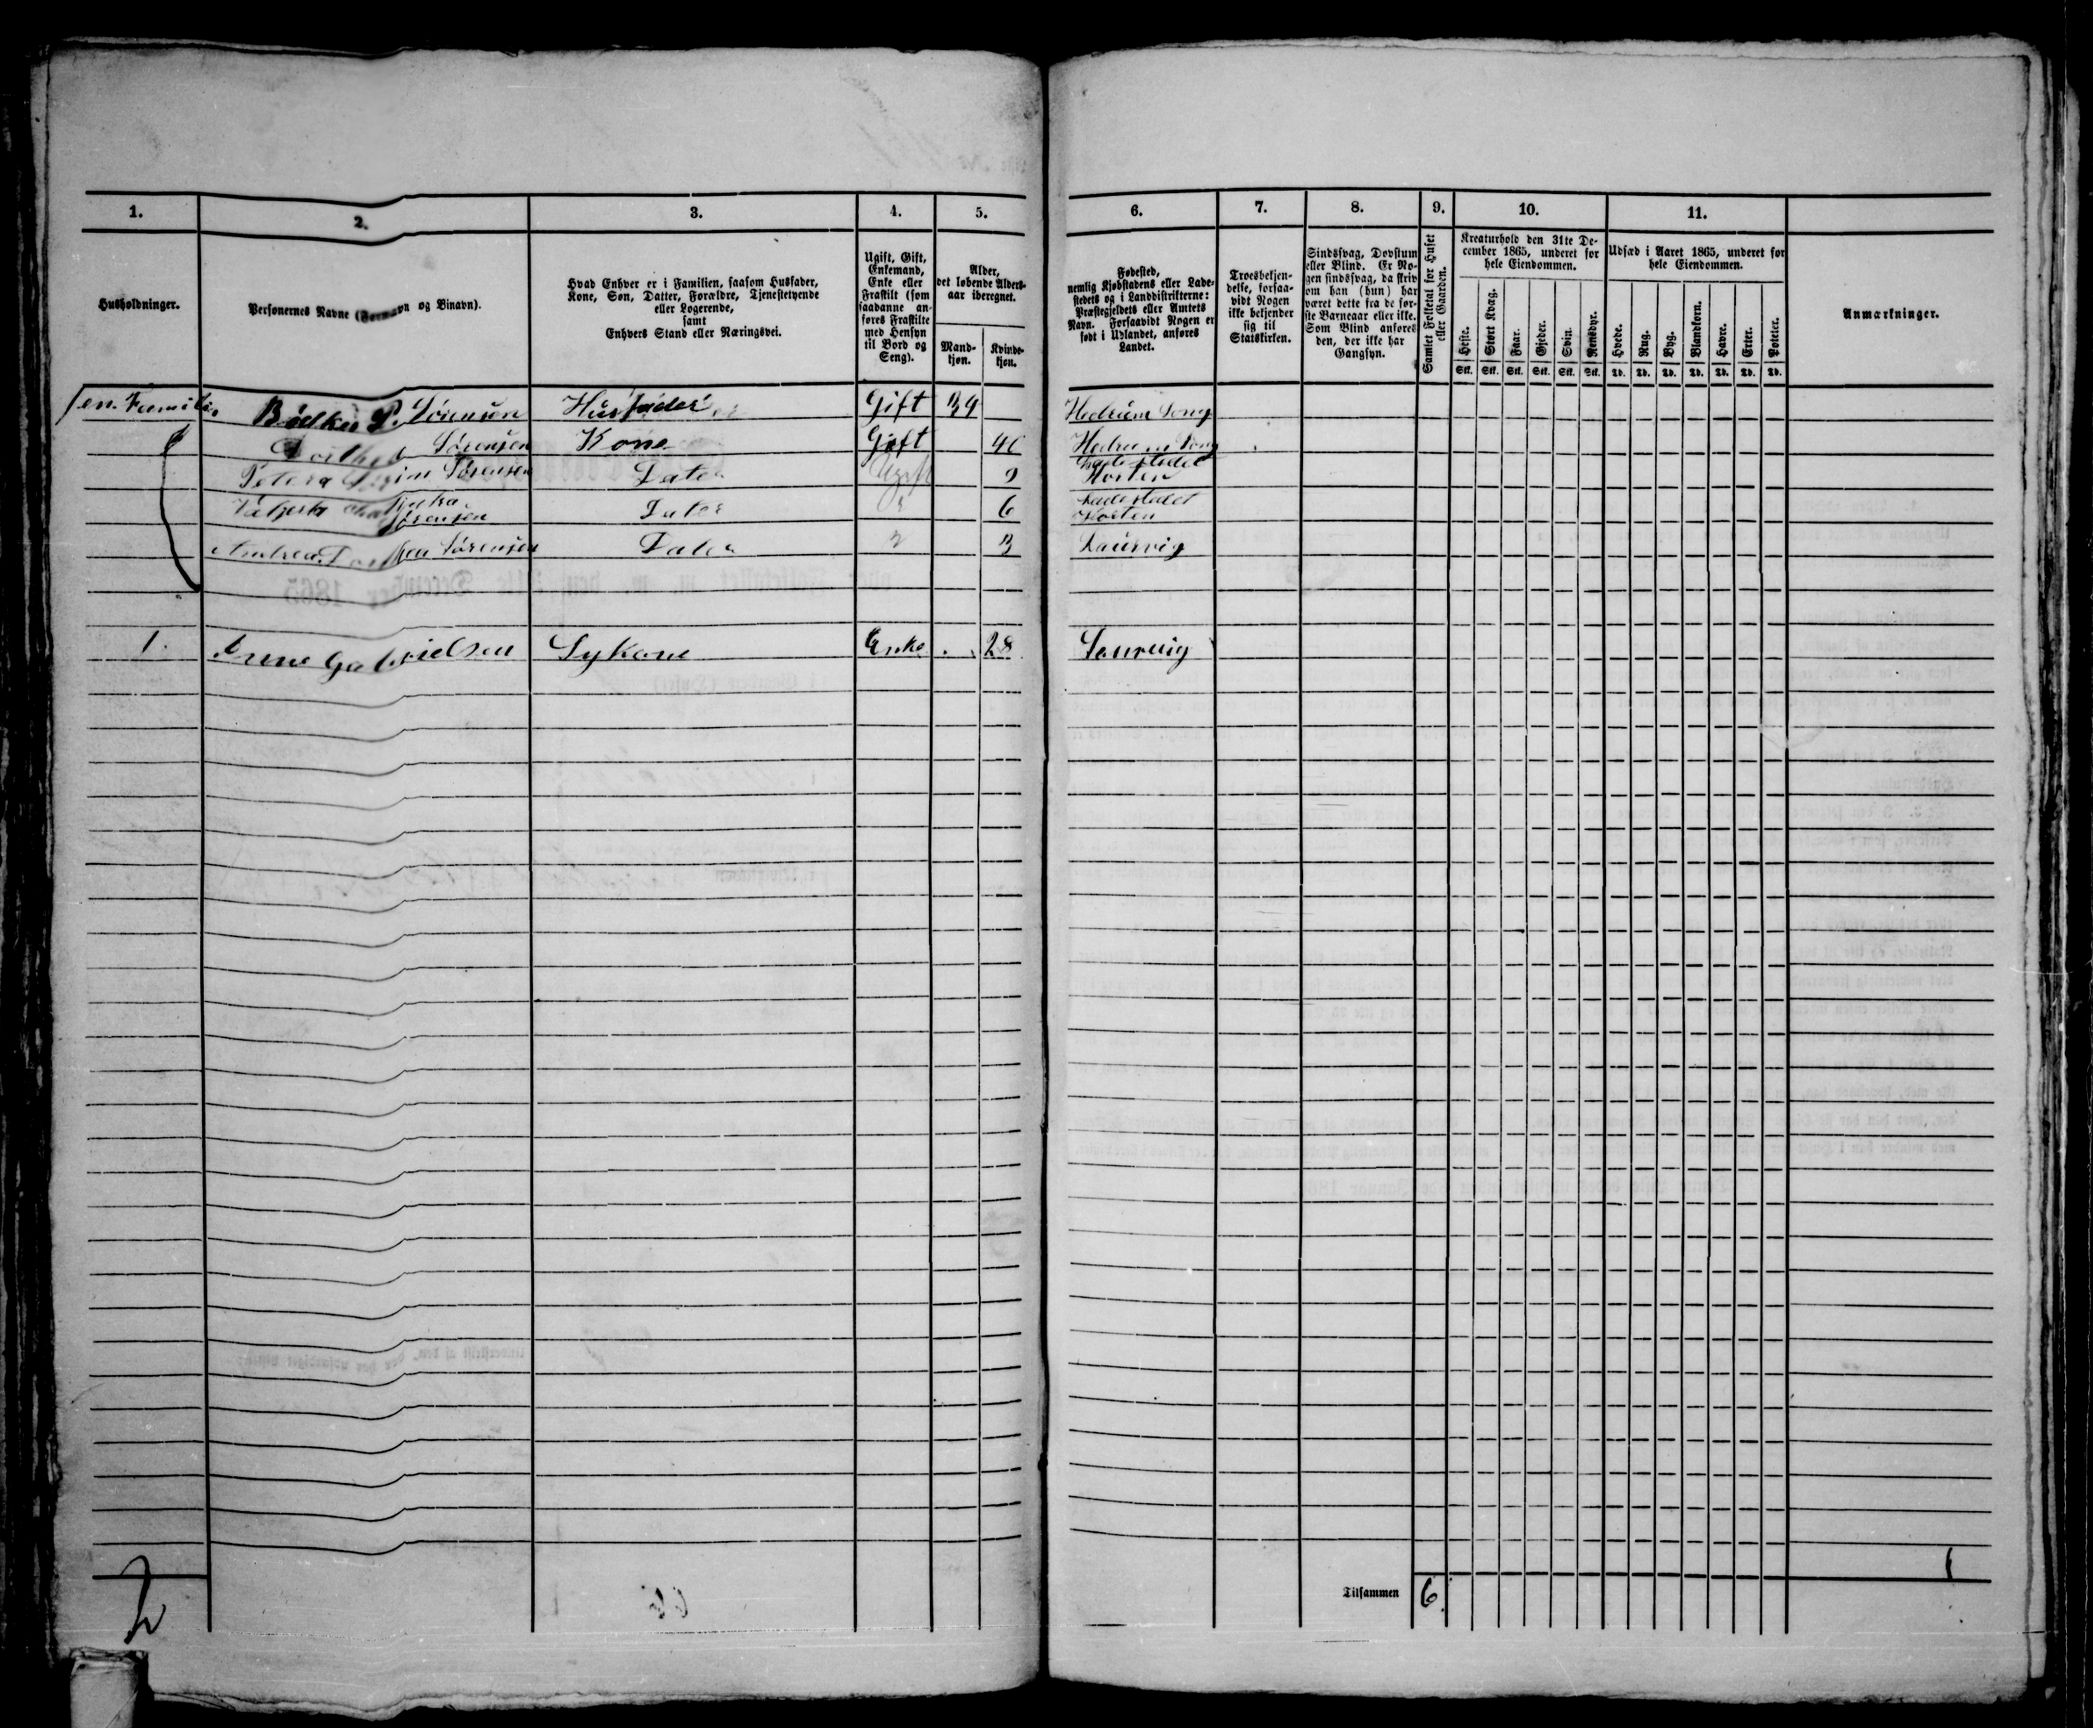 1. 2. 3. 4. 5. 6. 7. 8. 9. 10. 11.
Husholdninger.
Personernes Navne (Fornavn og Binavn).
Hvad Enhver er i Familien, saasom Husfader,
Kone, Søn, Datter, Forældre, Tjenestetyende
eller Logerende,
samt
Enhvers Stand eller Næringsvei.
Ugift, Gift,
Enkemand,
Enke eller
Fraskilt (som
saadanne an-
føres Fraskilte
med Hensyn
til Bord og
Seng).
Alder,
det løbende Alders-
aar iberegnet.
Mand-
kjøn.
Kvinde-
kjøn.
Fødested,
nemlig Kjøbstadens eller Lade-
stedets og i Landdistrikterne:
Præstegjeldets eller Amtets
Navn. Forsaavidt Nogen er
født i Udlandet, anføres
Landet.
Troesbekjen-
delse, forsaa-
vidt Nogen
ikke bekjender
sig til
Statskirken.
Sindssvag, Døvstum
eller Blind. Er No-
gen sindssvag, da skriv
om han (hun) har
været dette fra de før-
ste Barneaar eller ikke.
Som Blind anføres
den, der ikke har
Gangsyn.
Samlet Folketal for Huset
eller Gaarden.
Kreaturhold den 31te De-
cember 1865, underet for
hele Eiendommen.
Heste. Stort Kvæg. Faar. Gjeder. Svin. Rensdyr.
Stk. Stk. Stk. Stk. Stk. Stk.
Udsæd i Aaret 1865, underet for
hele Eiendommen.
Hvede. Rug. Byg. Blandkorn. Havre. Erter. Poteter.
Td. Td. Td. Td. Td. Td. Td.
Anmærkninger.
en Familie P. Sörensen Husfader Gift 34 Hedrum Song
Sörensen Kone Gift 40 Hedrum Song
Petera Sörensen Dater Ugift 9 Ladestedet
Horten
Sörensen Dater 6 Ladestedet
Horten
Andrea Sörensen Dater 3 Laurvig
1. Anne Gabrielsen Sykone Enke 28 Laurvig
2
Tilsammen 6.